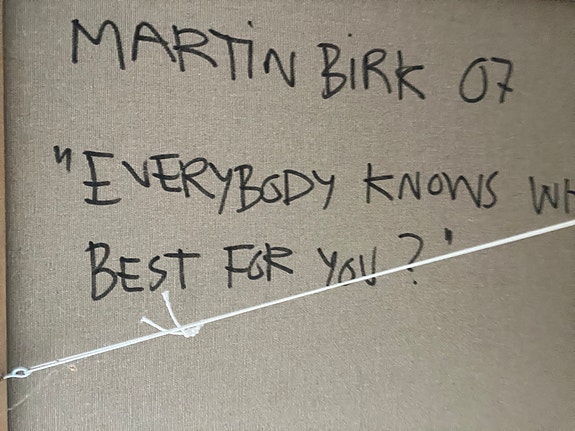 MARTiN BiRK 07
"EVERYBODY KNOWS WH
BEST FOR YOU?"